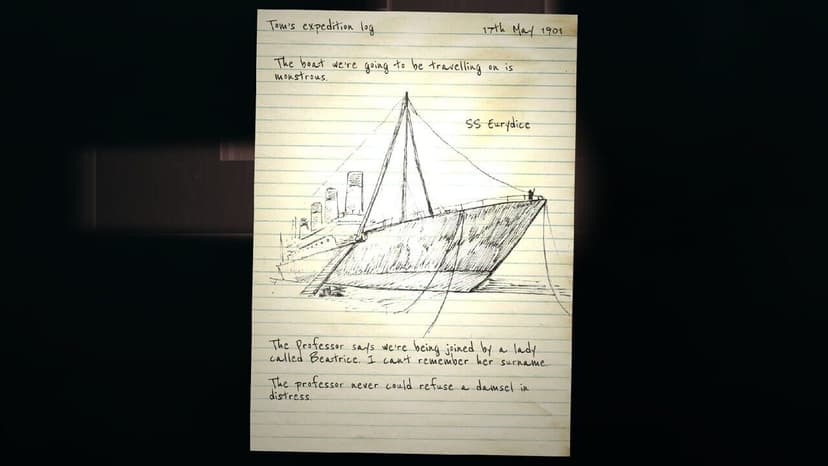 Tom's expedition log 17th May 1901
The boat we're going to be travelling on is
monstrous.
SS Eurydice
The Professor says we're being joined by a lady
called Beatrice. I can't remember her surname.
The professor never could refuse a damsel in
distress.